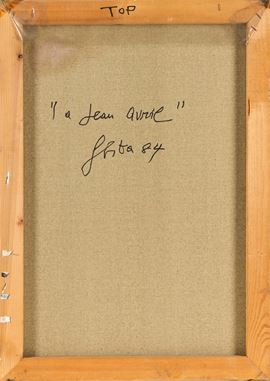 TOP
"a Jean Avril"
84